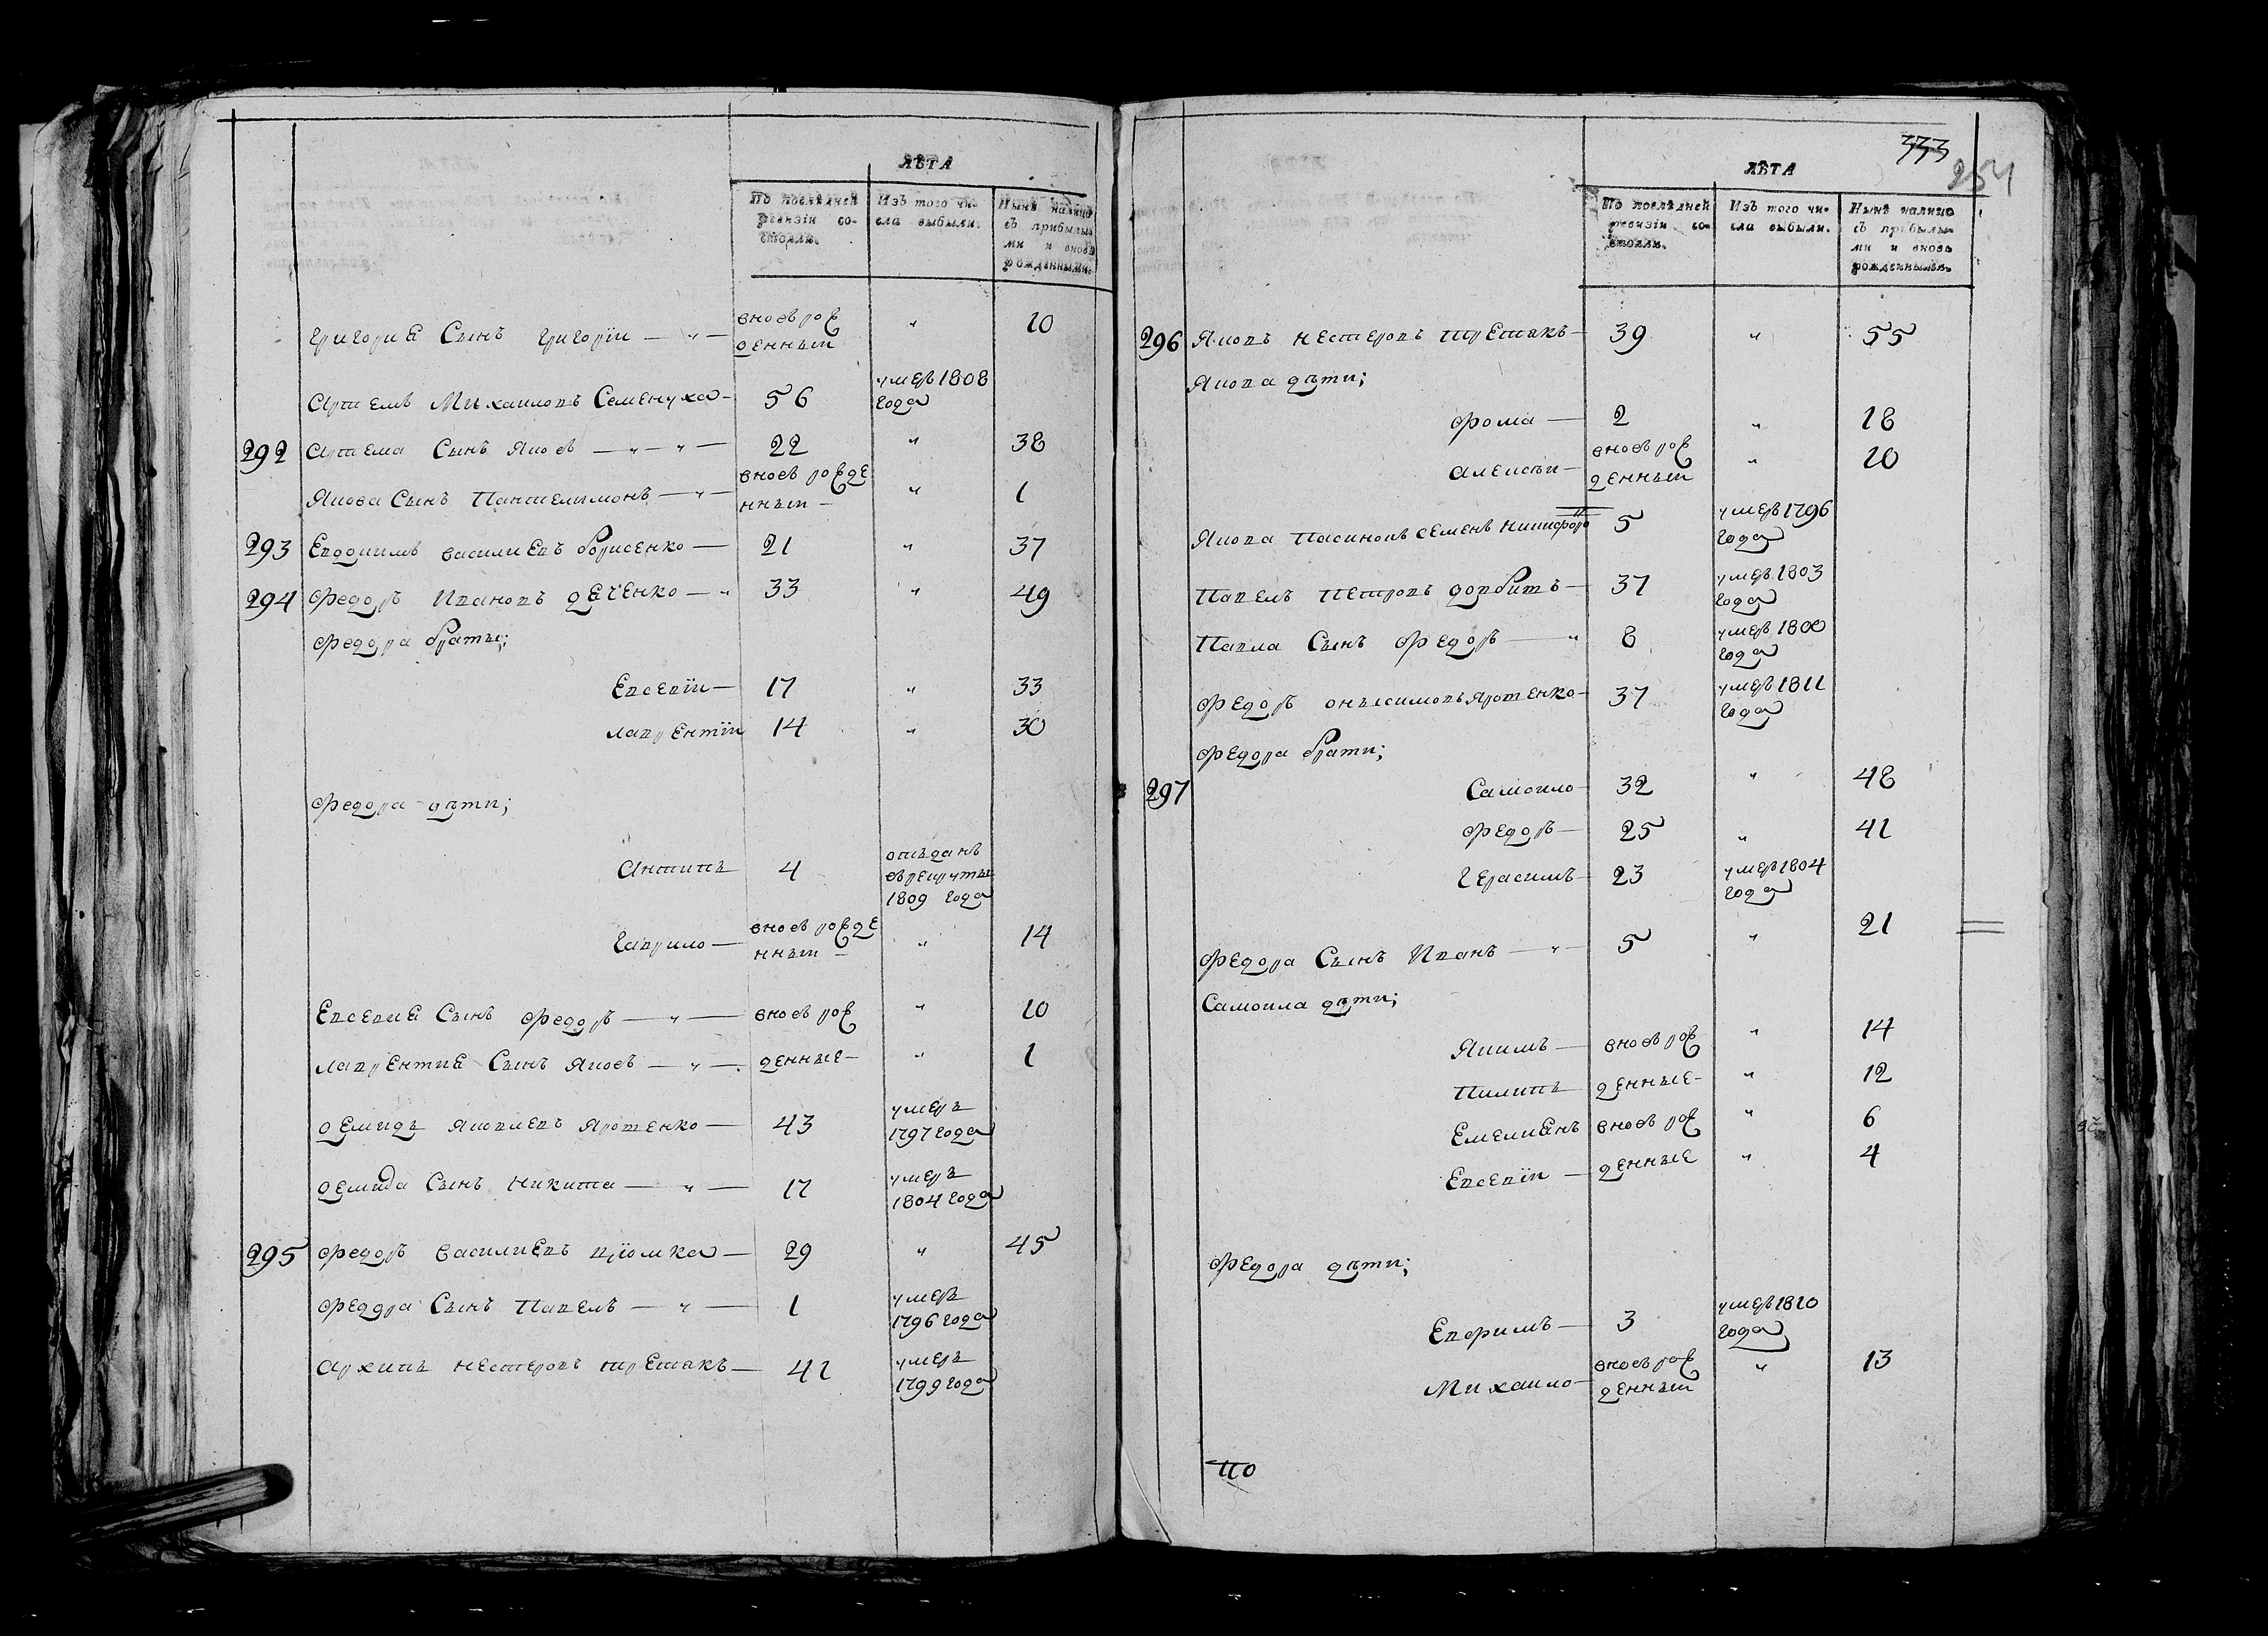 ЛѢТА
По послѣдней ревизіи состояли.
Изъ того числа выбыли.
Нынѣ налицо съ прибылыми и вновь рожденными.
Григория Сынъ Григорій — „ — вновь рож „ 10
денный
Артемъ Михаиловъ Семенуха — 56 умеръ 1808
года
292 Артема Сынъ Яковъ — „ — „ — 22 „ 38
Якова Сынъ Пантелимонъ — „ — вновь рожде „ 1
нный —
293 Евдокимъ Василиевъ Борисенко — 21 „ 37
294 Федоръ Ивановъ — „ 33 „ 49
Федора братьи;
Евсевій — 17 „ 33
Лаврентій 14 „ 30
Федора дѣти;
Антипъ 4 отъданъ
въ рекруты
1809 года
Гаврило — вновь рожде „ 14
нный —
Евсевия Сынъ Федоръ — „ — вновь рож „ 10
Лаврентия Сынъ Яковъ — „ — денные — „ 1
Демидъ Яковлевъ Яротенко — 43 умеръ
1797 года
Демида Сынъ Никита — „ — 17 умеръ
1804 года
295 Федоръ Василиевъ — 29 „ 45
Федора Сынъ Павелъ — „ — 1 умеръ
1796 года
Архипъ Нестеровъ Третякъ — 41 умеръ
1799 года
333
254
ЛѢТА
По послѣдней ревизіи состояли.
Изъ того числа выбыли.
Нынѣ налицо съ прибылыми и вновь рожденными.
296 Яковъ Нестеровъ Третякъ — 39 „ 55
Якова дѣти;
Фома — 2 „ 18
Алексѣй — вновь рож „ 10
денный
Якова Пасинокъ Семенъ Никифоро 5 умеръ 1796
в года
Павелъ Петровъ Довбишъ — 37 умеръ 1803
года
Павла Сынъ Федоръ — „ 8 умеръ 1800
года
Федоръ Онысимовъ Яротенко — 37 умеръ 1811
года
Федора брати;
297 Самоило — 32 „ 48
Федоръ — 25 „ 41
Герасимъ — 23 умеръ 1804
года
Федора Сынъ Иванъ — „ — 5 „ 21
Самоила дѣти;
Якимъ — вновь рож „ 14
Пилипъ денные — „ 12
Емелиянъ вновь рож „ 6
Евсевій — денные „ 4
Федора дѣти;
Евфимъ — 3 умеръ 1810
года
Михаило — вновь рож „ 13
денный
По